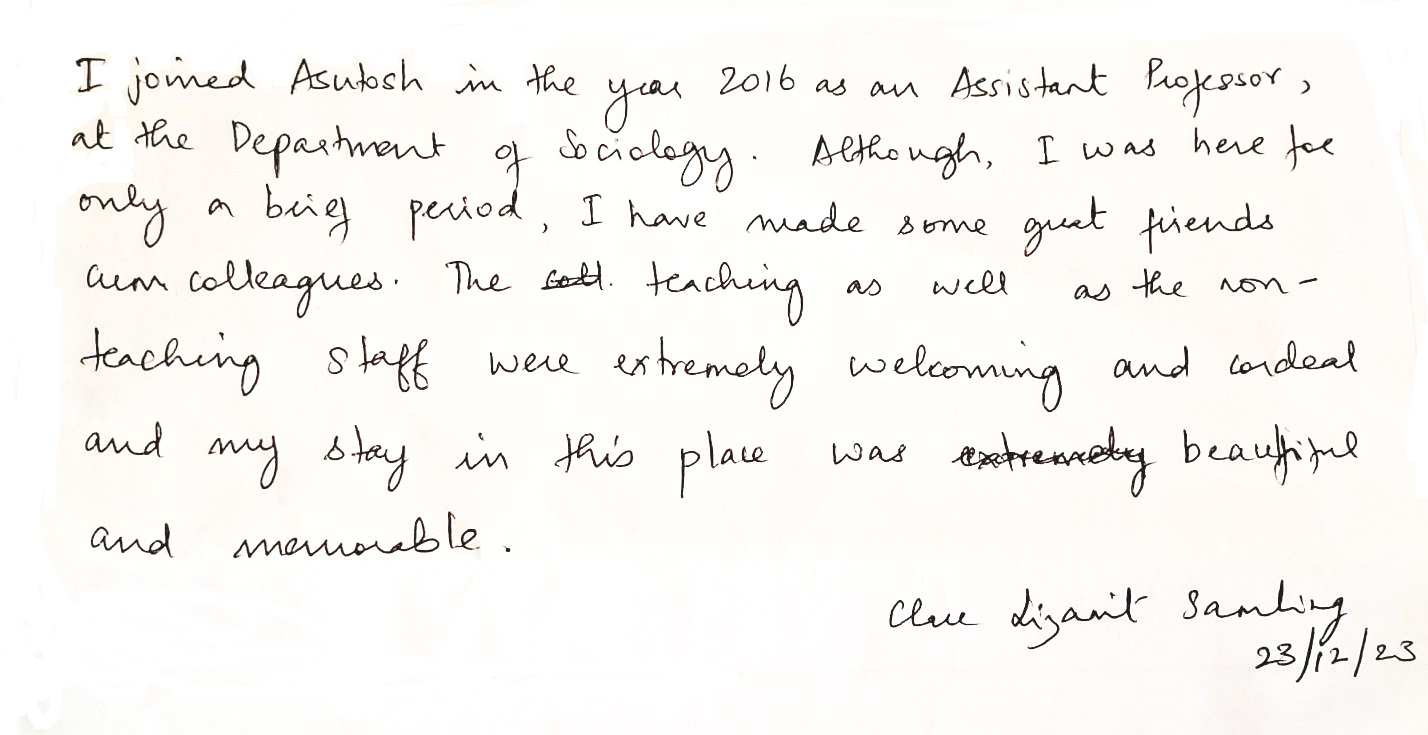 I joined Asutosh in the year 2016 as an Assistant Professor,
at the Department of Sociology. Although, I was here for
only a brief period, I have made some great friends
cum colleagues. The coll. teaching as well as the non-
teaching staff were extremely welcoming and cordeal
and my stay in this place was extremely beautiful
and memorable.
Clare Lizamit Samling
23/12/23